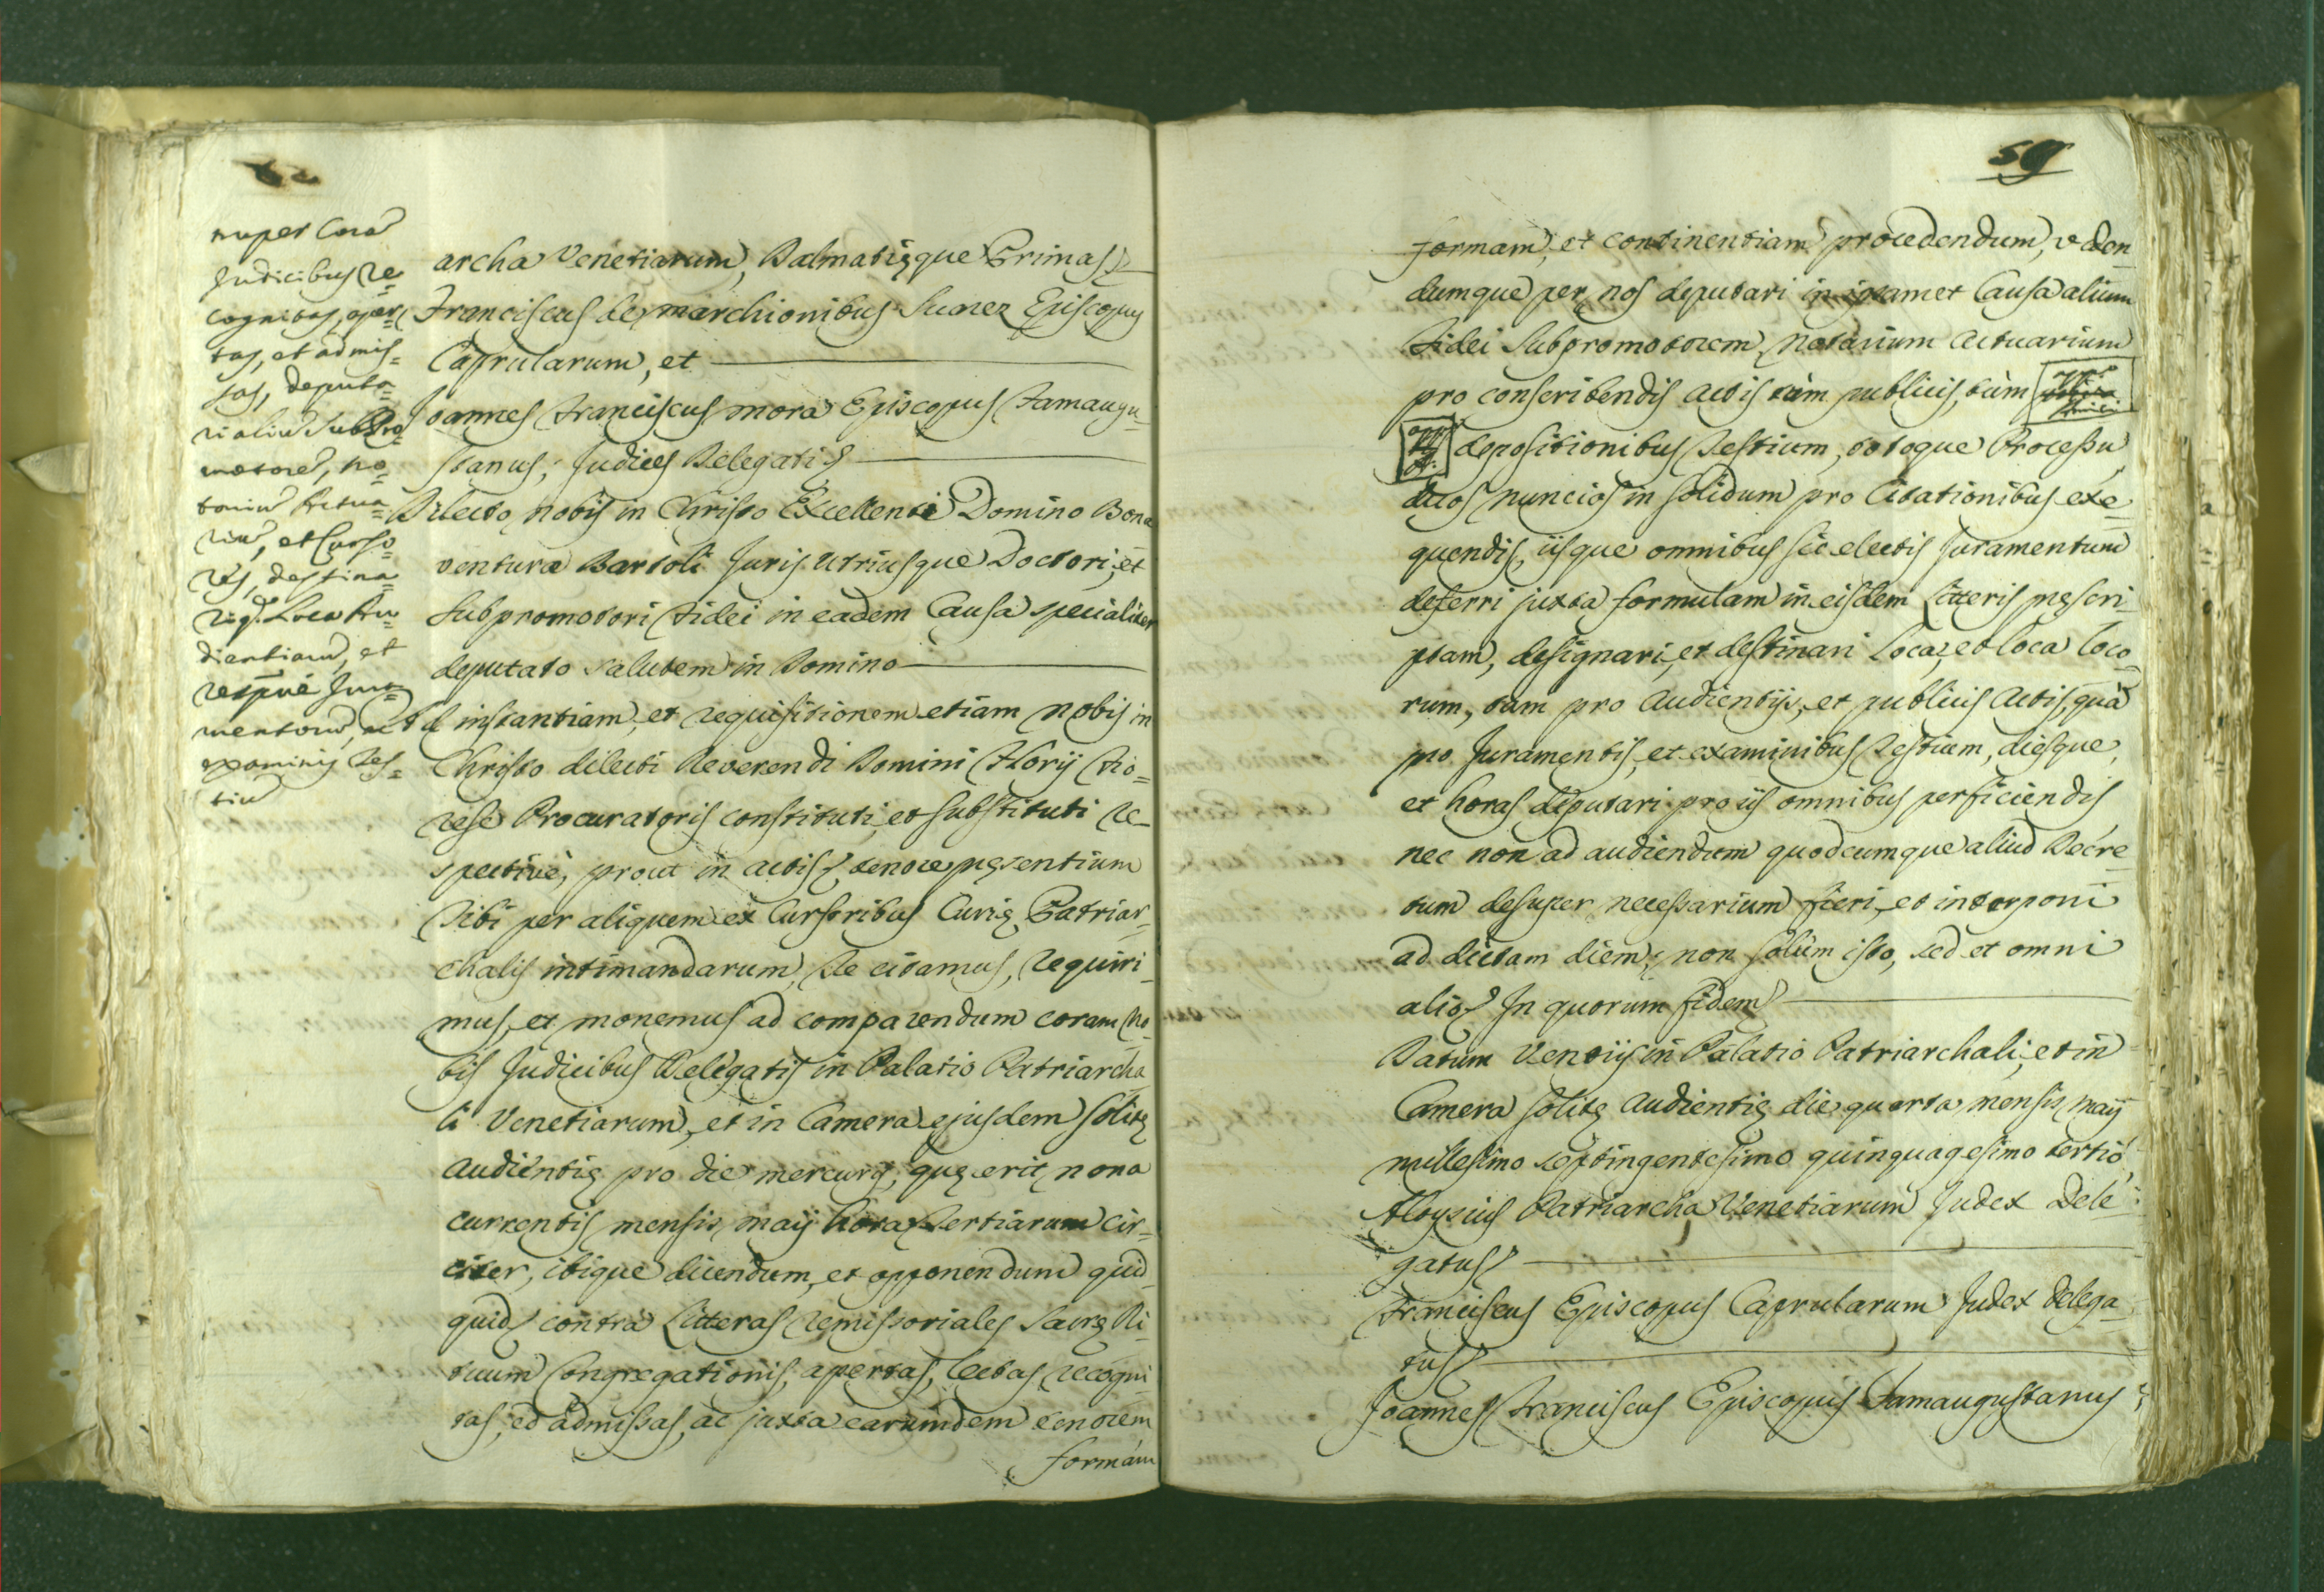 nuper Cora
Judicibus re=
cognitas, aper=
tas, et admis=
sas, deputa=
ri aliu SubPro=
motore, No=
tariu Actua=
riu, et Curso=
res, destina=
riq. Loca Au=
dientiaru, et
respve Jura=
mentoru, ac
examinis Tes=
tiu
archa Venetiarum, Dalmatięque Primas
Franciscus de Marchionibus Suarez Episcopus
Caprularum, et
Joannes Franciscus Mora Episcopus Famaugu=
stanus, Judices Delegati
Dilecto Nobis in Christo Excellenti Domino Bona
ventura Bartoli Juris Utriusque Doctori, et
Subpromotori Fidei in eadem Causa specialiter
deputato salutem in Domino
Ad instantiam, et requisitionem etiam Nobis in
Christo dilecti Reverendi Domini Florij Fio=
rese Procuratoris constituti, et substituti re=
spective, prout in actis, tenore pręsentium
Tibi per aliquem ex Cursoribus Curię Patriar=
chalis intimandarum, Te citamus, requiri=
mus, et monemus ad comparendum coram No=
bis Judicibus Delegatis in Palatio Patriarcha
li Venetiarum, et in Camera ejusdem solitę
Audientię pro die mercurij, quę erit nona
currentis mensis maij hora Tertiarum cir=
citer, ibique dicendum, et opponendum quid
quid contra Litteras remissoriales Sacrę Ri=
tuum Congregationis, apertas, lectas, recogni=
tas, et admissas, ac juxta earumdem tenorem
formam
59
formam, et continentiam procedendum, viden=
dumque per nos deputari in ipsamet Causa alium
Fidei Subpromotorem, Notarium Actuarium
pro conscribendis actis tùm publicis, tùm
depositionibus Testium, totoque Processu
duos nuncios in solidum pro Citationibus exe=
quendis, iisque omnibus sic electis Juramentum
deferri juxta formulam in eisdem Litteris pręscri=
ptam, designari, et destinari Loca, et loca loco=
rum, tam pro Audientijs, et publicis Actis, quà
pro Juramentis, et examinibus Testium, diesque,
et horas deputari pro iis omnibus perficiendis
nec non ad audiendum quodcumque aliud Decre=
tum desuper necessarium fieri, et interponi
ad dictam diem, non solùm isto, sed et omni
alio In quorum fidem
Datum Ventijs in Palatio Patriarchali, et in
Camera solitę Audientię die quarta mensis maij
millesimo septingentesimo quinquagesimo tertio
Aloysius Patriarcha Venetiarum Judex Dele=
gatus
Franciscus Episcopus Caprularum Judex delega=
tus
Joannes Franciscus Episcopus Famaugustanus